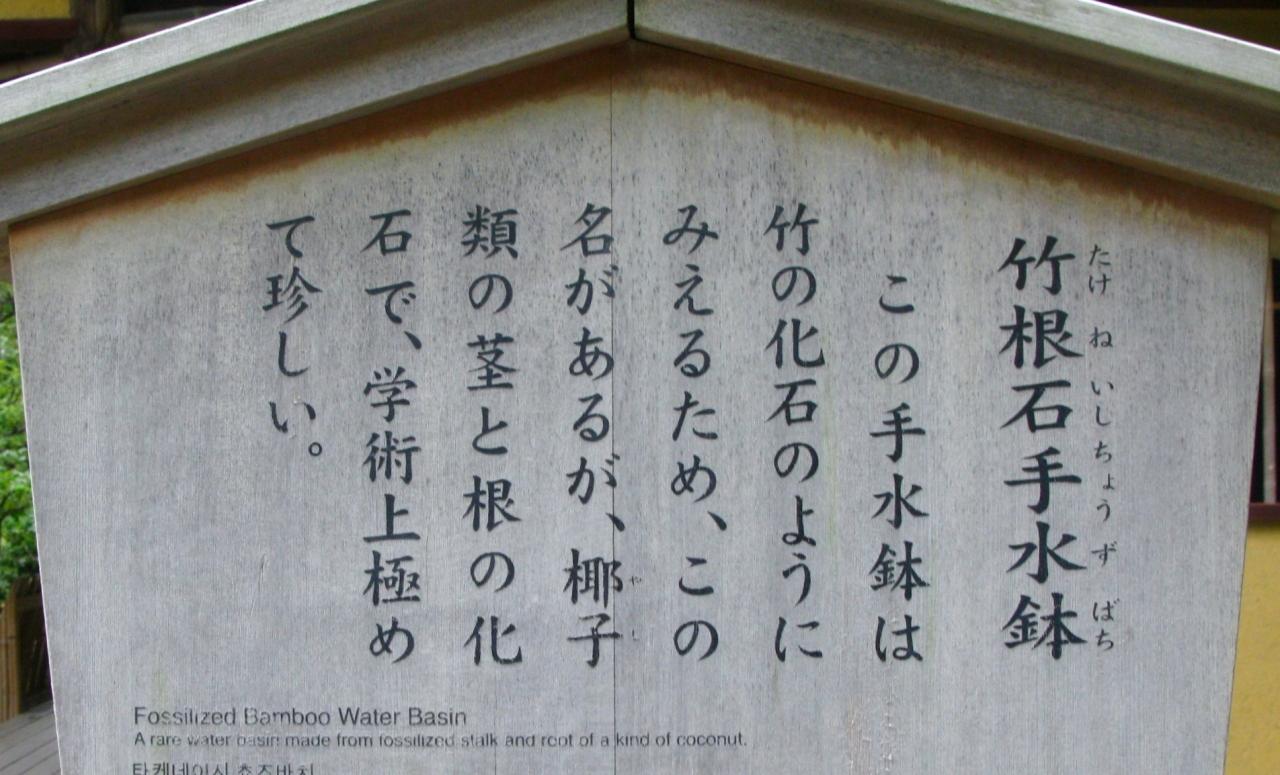 竹根石手水鉢
たけ ね いし ちょう ず ばち
この手水鉢は
竹の化石のように
みえるため、この
名があるが、椰子
や し
類の茎と根の化
石で、学術上極め
て珍しい。
Fossilized Bamboo Water Basin
A rare water basin made from fossilized stalk and root of a kind of coconut.
타케네이시 쵸즈바치